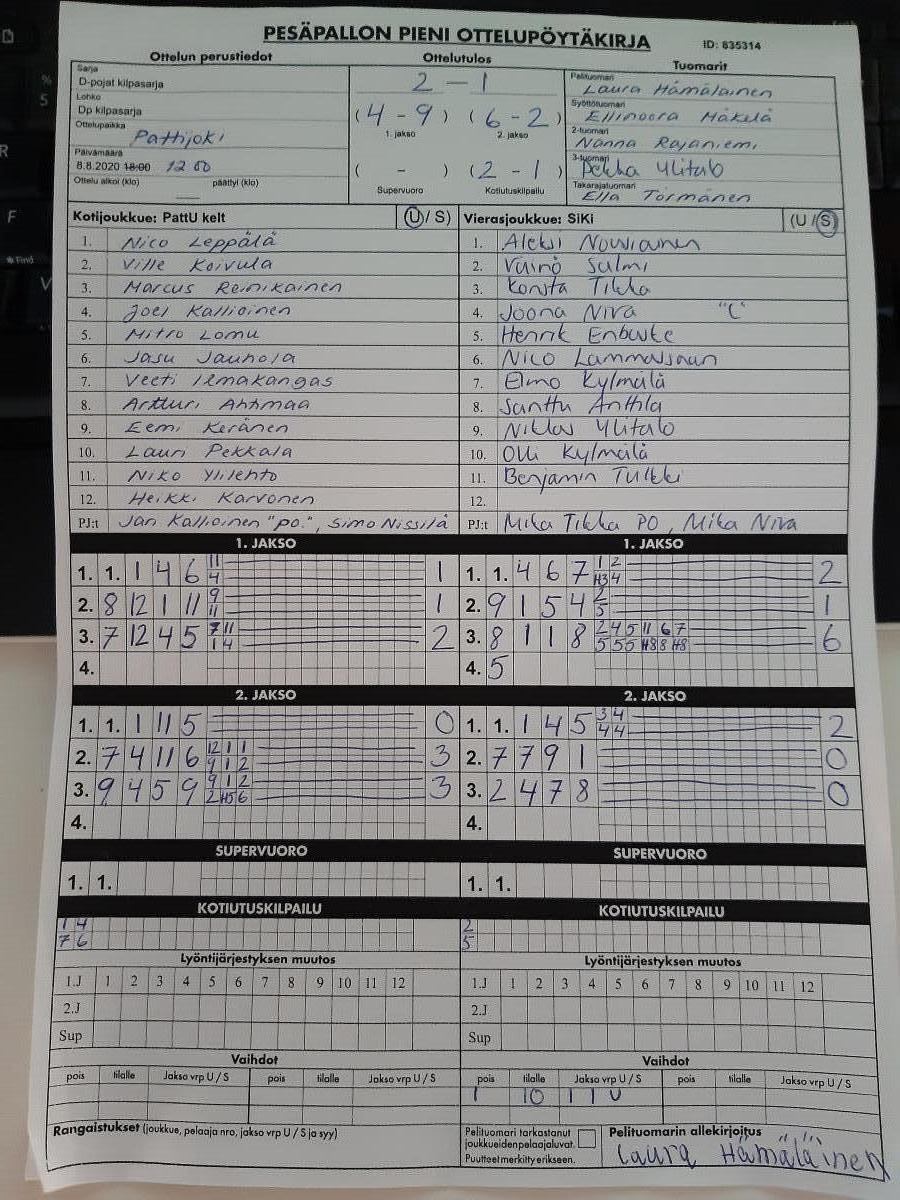 PESÄPALLON PIENI OTTELUPÖYTÄKIRJA
ID: 835314
Ottelun perustiedot
Ottelutulos
Tuomarit
Sarja
D-pojat kilpasarja
Lohko
Dp kilpasarja
Ottelupaikka
Pattijoki
Päivämäärä
8.8.2020 18:00 12 00
Ottelu alkoi (klo) päättyi (klo)
2 - 1
(4 - 9) (6 - 2)
1. jakso 2. jakso
( - ) (2 - 1)
Supervuoro Kotiutuskilpailu
Pelituomari
Laura Hämäläinen
Syöttötuomari
Ellinoora Mäkelä
2-tuomari
Nanna Rajaniemi
3-tuomari
Pekka Ylitalo
Takarajatuomari
Ella Törmänen
Kotijoukkue: PattU kelt (U/ S)
1. Nico Leppälä
2. Ville Koivula
3. Marcus Reinikainen
4. Joel Kallioinen
5. Mitro Lomu
6. Jasu Jauhola
7. Veeti Ilmakangas
8. Artturi Ahtmaa
9. Eemi Keränen
10. Lauri Pekkala
11. Niko Ylilehto
12. Heikki Karvonen
PJ:t Jan Kallioinen "po.", Simo Nissilä
Vierasjoukkue: SiKi (U /S)
1. Aleksi Nousiainen
2. Väinö Salmi
3. Konsta Tikka
4. Joona Niva "C"
5. Henrik Enbuske
6. Nico Lammassaari
7. Elmo Kylmälä
8. Santtu Anttila
9. Niklas Ylitalo
10. Olli Kylmälä
11. Benjamin Tulkki
12.
PJ:t Mika Tikka PO, Mika Niva
1. JAKSO
1. 1. 1 4 6 11 1
4
2. 8 12 1 11 9 1
11
3. 7 12 4 5 7 11 2
1 4
4.
1. JAKSO
1. 1. 4 6 7 1 2 2
H3 4
2. 9 1 5 4 2 1
5
3. 8 1 1 8 2 4 5 11 6 7 6
5 5 5 H8 8 H8
4. 5
2. JAKSO
1. 1. 1 11 5 0
2. 7 4 11 6 12 1 1 3
9 1 2
3. 9 4 5 9 9 1 2 3
2 H5 6
4.
2. JAKSO
1. 1. 1 4 5 3 4 2
4 4
2. 7 7 9 1 0
3. 2 4 7 8 0
4.
SUPERVUORO
1. 1.
SUPERVUORO
1. 1.
KOTIUTUSKILPAILU
1 4
7 6
KOTIUTUSKILPAILU
2
5
Lyöntijärjestyksen muutos
1.J 1 2 3 4 5 6 7 8 9 10 11 12
2.J
Sup
Lyöntijärjestyksen muutos
1.J 1 2 3 4 5 6 7 8 9 10 11 12
2.J
Sup
Vaihdot
pois tilalle Jakso vrp U / S pois tilalle Jakso vrp U / S
Vaihdot
pois tilalle Jakso vrp U / S pois tilalle Jakso vrp U / S
1 10 1 1 U
Rangaistukset (joukkue, pelaaja nro, jakso vrp U / S ja syy)
Pelituomari tarkastanut
joukkueidenpelaajaluvat.
Puutteet merkitty erikseen.
Pelituomarin allekirjoitus
Laura Hämäläinen